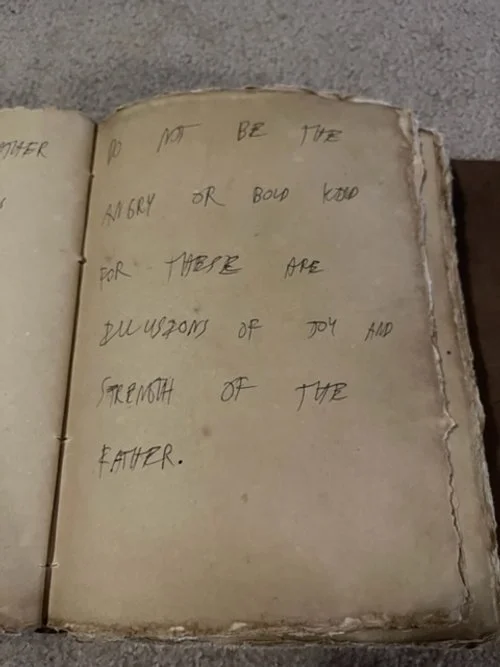 DO NOT BE THE
ANGRY OR BOLD KIND
FOR THESE ARE
ILLUSIONS OF JOY AND
STRENGTH OF THE
FATHER.